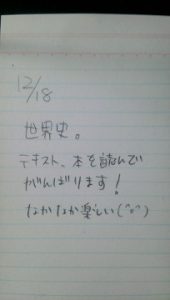 12/18
世界史。
テキスト、本を読んで
がんばります!
なかなか楽しい(^o^)